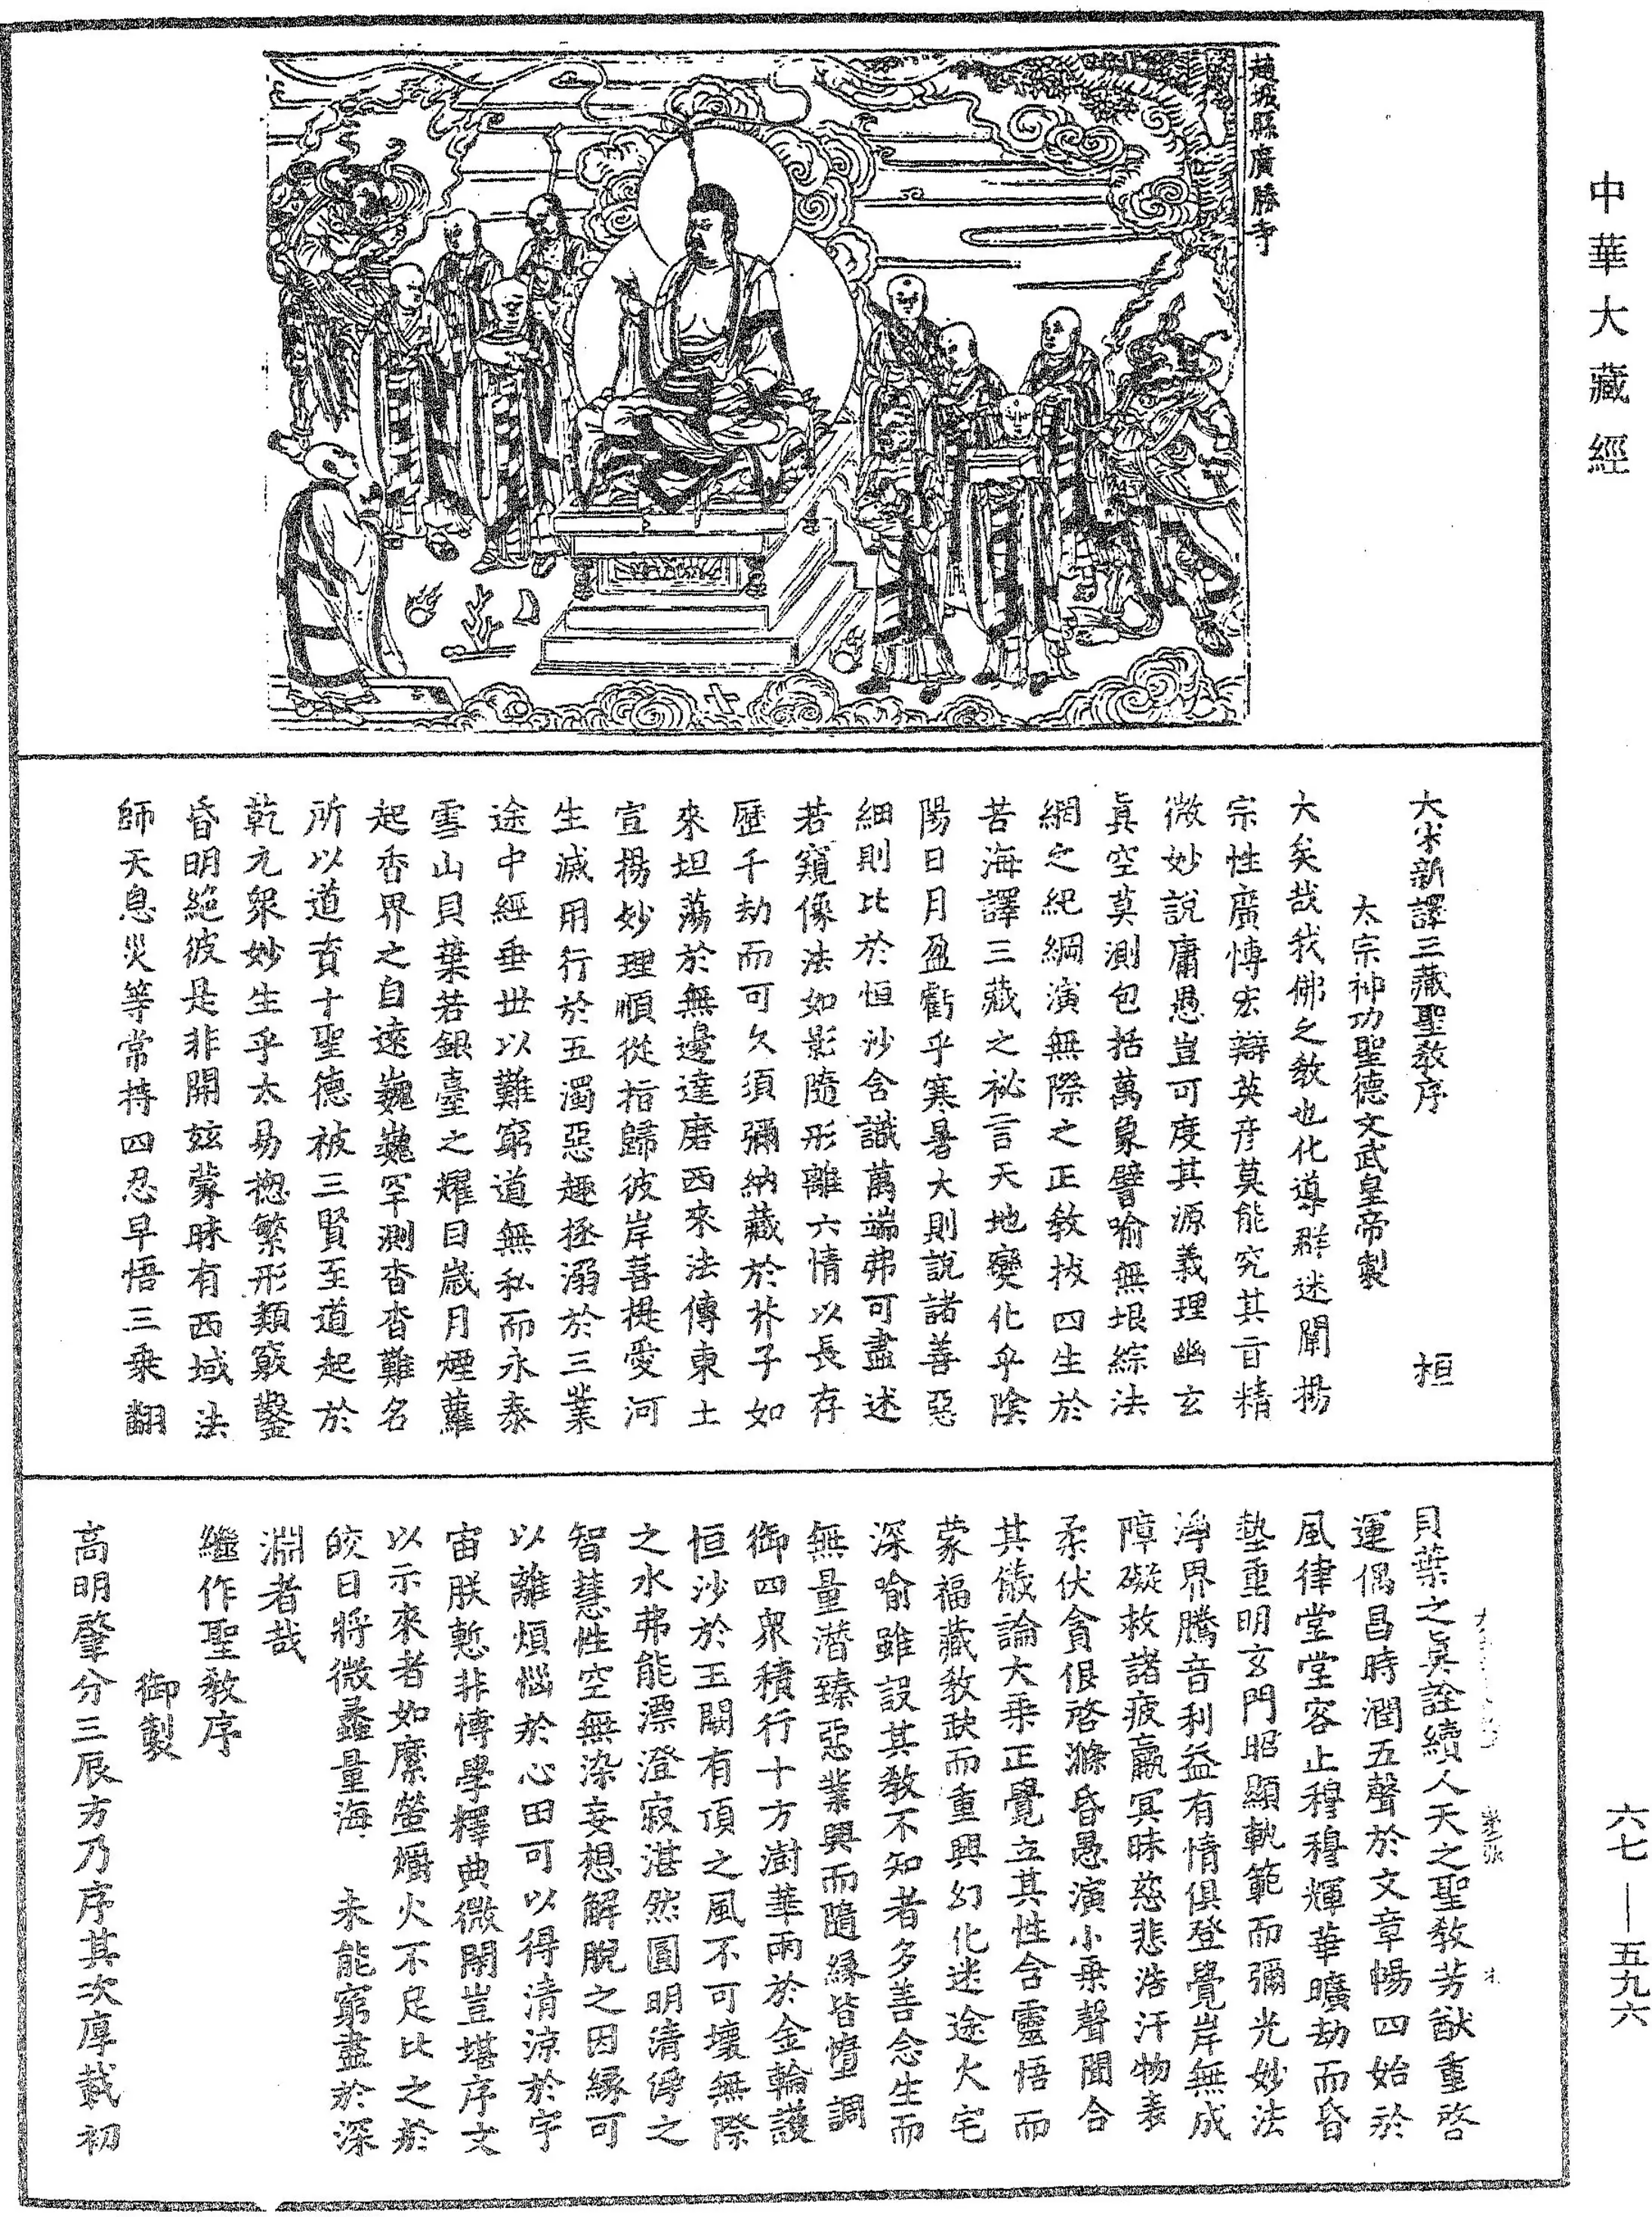 中華大藏經
趙城縣廣勝寺
大宋新譯三藏聖教序 桓
太宗神功聖德文武皇帝製
大矣哉我佛之教也化導群迷闡揚
宗性廣愽宏辯英彦莫能究其旨精
微妙說庸愚豈可度其源義理幽玄
真空莫測包括萬象譬喻無垠綜法
網之紀綱演無際之正教拔四生於
苦海譯三藏之祕言天地變化乎陰
陽日月盈虧乎寒暑大則說諸善惡
細則比於恒沙含識萬端弗可盡述
若窺像法如影隨形離六情以長存
歷千劫而可久須彌納藏於芥子如
來坦蕩於無邊達磨西來法傳東土
宣揚妙理順從指歸彼岸菩提愛河
生滅用行於五濁惡趣拯溺於三業
途中經垂世以難窮道無私而永泰
雪山貝葉若銀臺之耀目歲月煙蘿
起香界之自遠巍巍罕測杳杳難名
所以道資十聖德被三賢至道起於
乾元衆妙生乎太易揔繁形類竅鑿
昏明絕彼是非開茲蒙昧有西域法
師天息災等常持四忍早悟三乘翻
貝葉之真詮續人天之聖教芳猷重啓
運偶昌時潤五聲於文章暢四始於
風律堂堂容止穆穆輝華曠劫而昏
墊重明玄門昭顯軌範而彌光妙法
淨界騰音利益有情俱登覺岸無成
障礙救諸疲羸冥昧慈悲浩汗物表
柔伏貪很啓滌昏愚演小乘聲聞合
其儀論大乘正覺立其性含靈悟而
蒙福藏教缺而重興幻化迷途火宅
深喻雖設其教不知者多善念生而
無量潛臻惡業興而隨緣皆墮調
御四衆積行十方澍華雨於金輪護
恒沙於玉闕有頂之風不可壞無際
之水弗能漂澄寂湛然圓明清淨之
智慧性空無染妄想解脫之因緣可
以離煩惱於心田可以得清涼於宇
宙朕慙非博學釋典微閑豈堪序文
以示來者如縻螢爝火不足比之於
皎日將微蠡量海 未能窮盡於深
淵者哉
繼作聖教序
御製
高明肇分三辰方乃序其次厚載初
六七—五九六